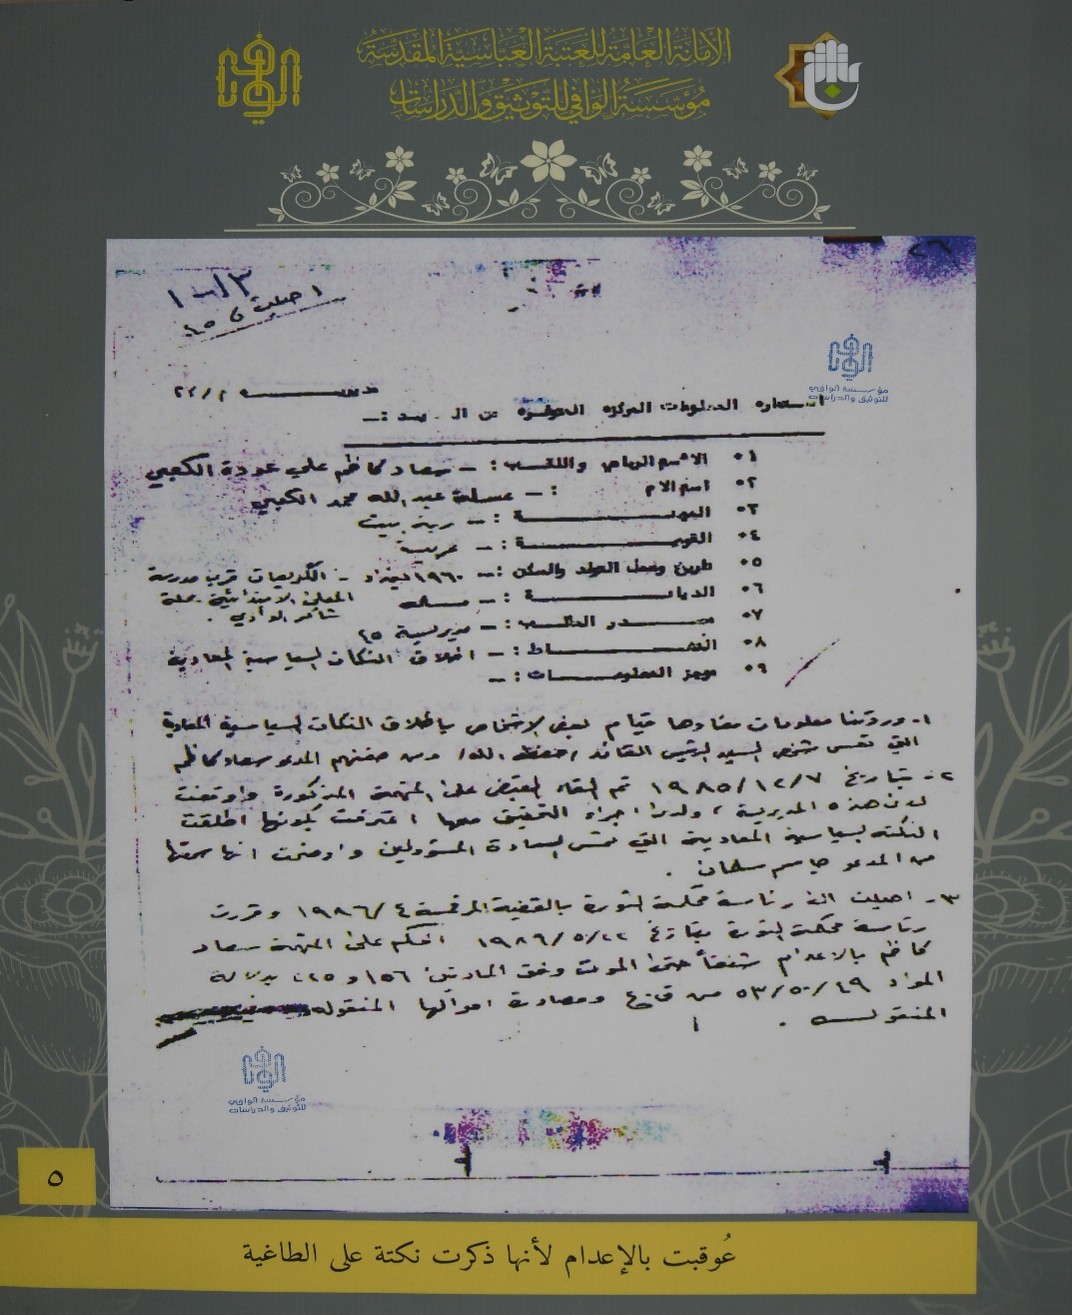 الأمانة العامة للعتبة العباسية المقدسة
مؤسسة الوافي للتوثيق والدراسات
٢٦
احيلت
مؤسسة الوافي
للتوثيق والدراسات
استمارة المعلومات المركزة المتوفرة عن الـ
٠١ الاسم الرباعي واللقب :ـ سعاد كاظم علي عودة الكعبي
٠٢ اسم الام :ـ عسلة عبد الله محمد الكعبي
٠٣ المهنة :ـ ربة بيت
٠٤ القومية :ـ عربية
٠٥ تاريخ ومحل التولد والسكن :ـ ١٩٦٠ بغداد - الكريعات قرب مدرسة
٠٦ الديانة :ـ مسلمة
٠٧ مصدر الكسب :ـ مديرية ٦٥
٠٨ النشاط :ـ اطلاق النكات السياسية المعادية
٠٩ موجز المعلومات :ـ
١- وردتنا معلومات مفادها قيام بعض الاشخاص باطلاق النكات السياسية المعادية
التي تمس شخص السيد الرئيس القائد (حفظه الله) ومن ضمنهم المدعو سعاد كاظم
٢- بتاريخ ١٩٨٥/١٢/٧ تم القاء القبض على المتهمة المذكورة واوقفت
لدى هذه المديرية ، ولدى اجراء التحقيق معها اعترفت بكونها اطلقت
النكتة السياسية المعادية التي تمس السادة المسؤولين واوضحت انها سمعتها
من المدعو جاسم سلمان .
٣- احيلت الى رئاسة محكمة الثورة بالقضية المرقمة ١٩٨٦/٤ وقررت
رئاسة محكمة الثورة بتاريخ ١٩٨٦/٥/٢٢ الحكم على المتهمة سعاد
كاظم بالاعدام شنقاً حتى الموت وفق المادتين ١٥٦ و ٢٢٥ بدلالة
المواد ٥٣/٥٠/٤٩ من ق ع ومصادرة اموالها المنقولة
المنقولة .
مؤسسة الوافي
للتوثيق والدراسات
٥
عُوقبت بالإعدام لأنها ذكرت نكتة على الطاغية